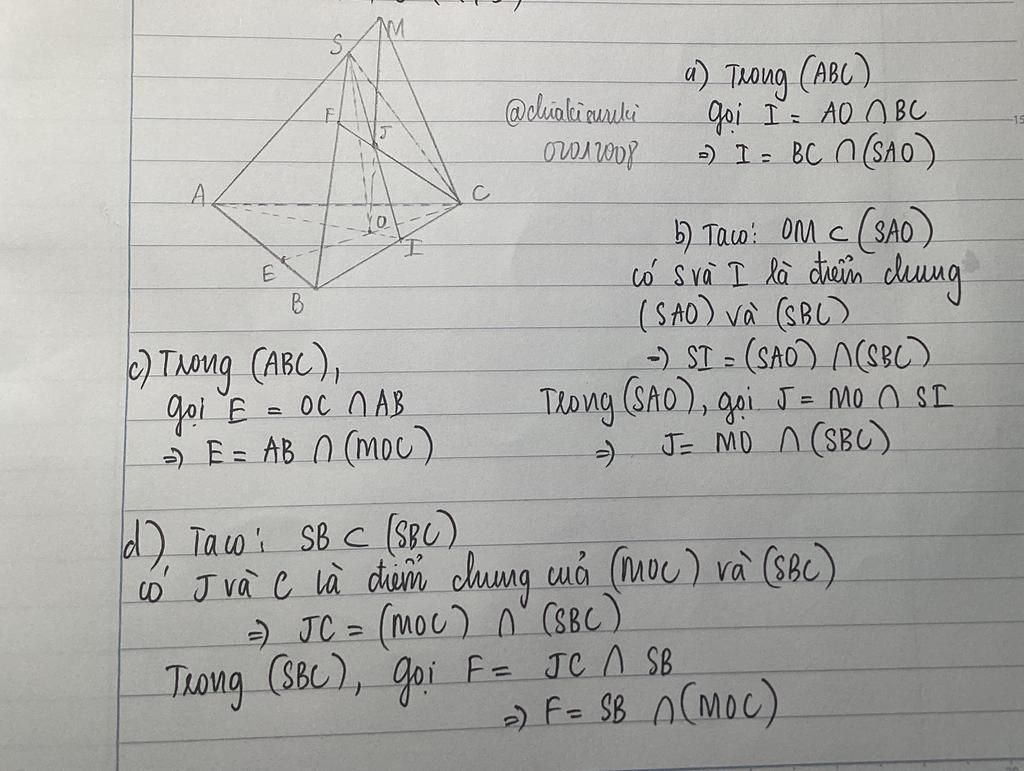 M
S
F
J
A
C
O
E
I
B
@chiakisuuki
02012008
a) Trong (ABC)
gọi I = AO ∩ BC
⇒ I = BC ∩ (SAO)
b) Ta có: OM ⊂ (SAO)
có S và I là điểm chung
(SAO) và (SBC)
⇒ SI = (SAO) ∩ (SBC)
Trong (SAO), gọi J = MO ∩ SI
⇒ J = MO ∩ (SBC)
c) Trong (ABC),
gọi E = OC ∩ AB
⇒ E = AB ∩ (MOC)
d) Ta có: SB ⊂ (SBC)
có J và C là điểm chung của (MOC) và (SBC)
⇒ JC = (MOC) ∩ (SBC)
Trong (SBC), gọi F = JC ∩ SB
⇒ F = SB ∩ (MOC)